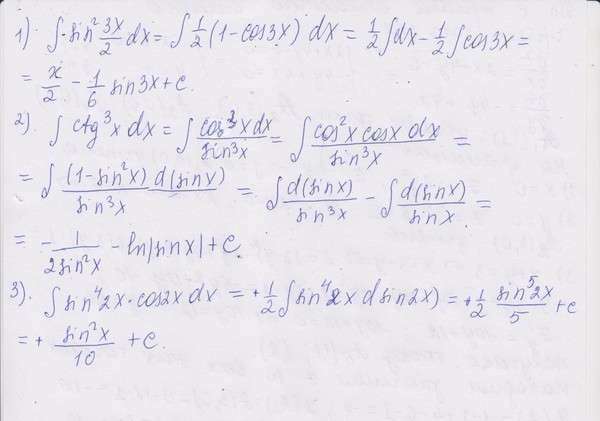 1). ∫ sin² 3x/2 dx = ∫ 1/2 (1 - cos3x) dx = 1/2 ∫dx - 1/2 ∫cos3x =
= x/2 - 1/6 sin3x + c.
2). ∫ ctg³x dx = ∫ cos³x dx / sin³x = ∫ cos²x cosx dx / sin³x =
= ∫ (1-sin²x) d(sinx) / sin³x = ∫ d(sinx) / sin³x - ∫ d(sinx) / sinx =
= - 1 / 2sin²x - ln|sinx| + c.
3). ∫ sin⁴2x · cos2x dx = + 1/2 ∫ sin⁴2x d sin2x) = + 1/2 sin⁵2x / 5 + c
= + sin²x / 10 + c.